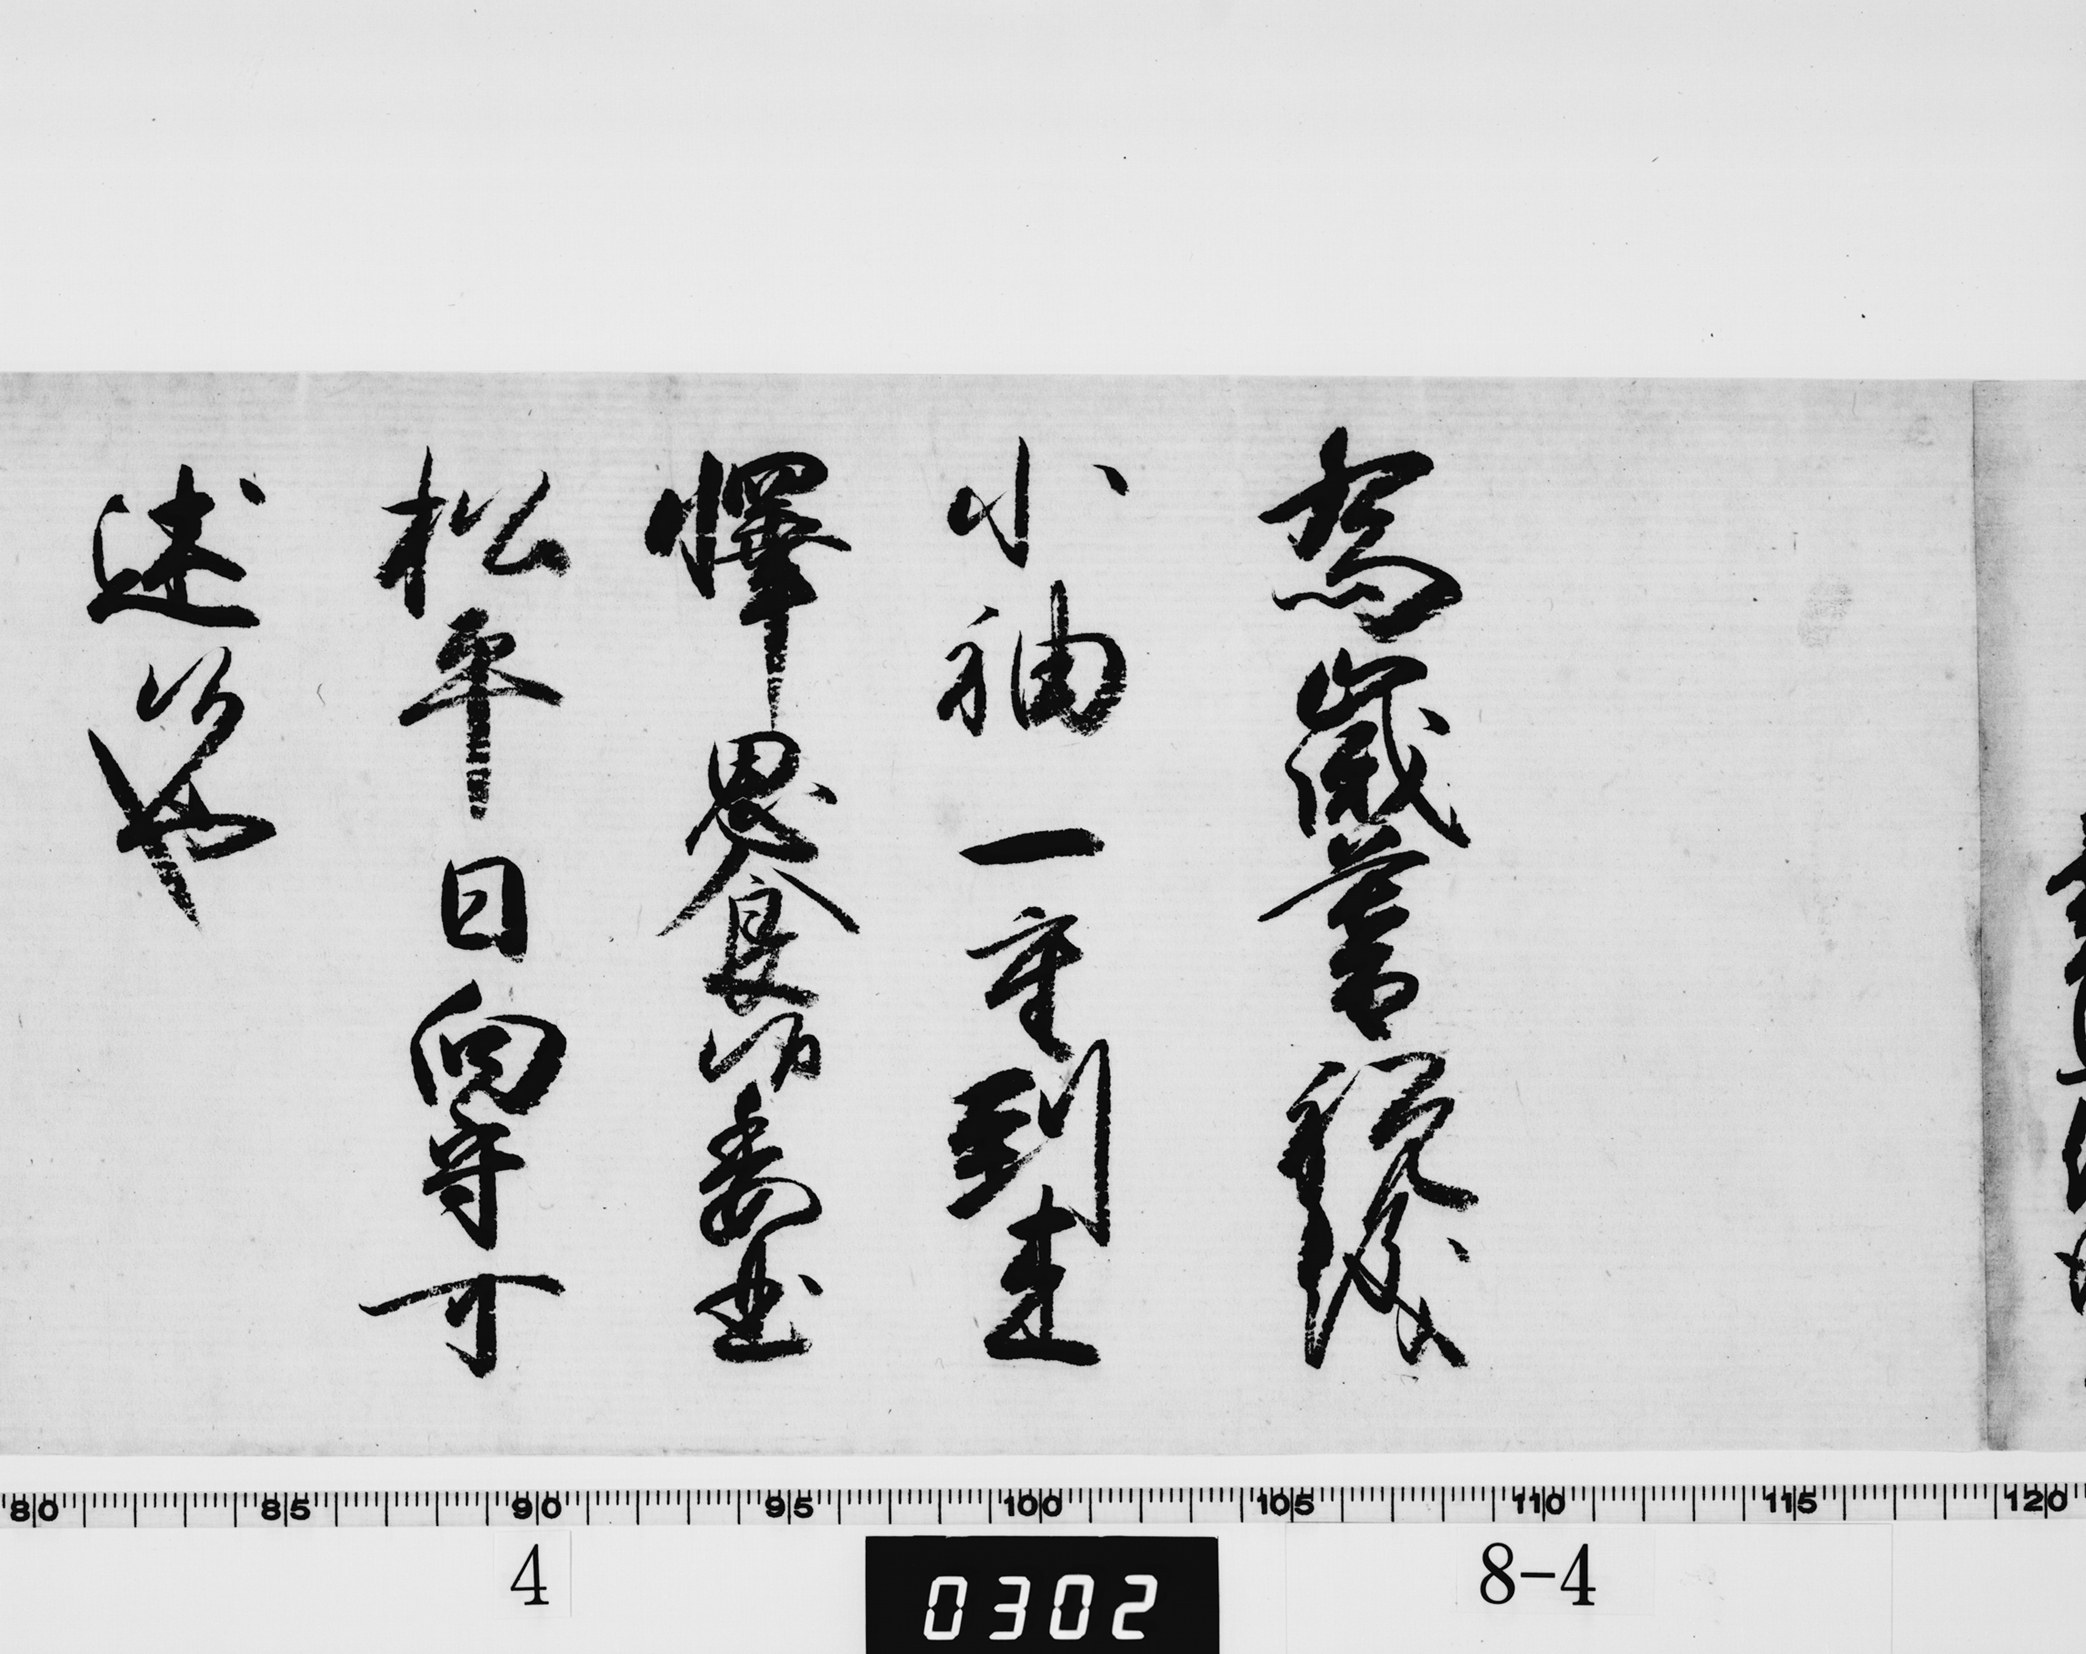 為歳暮祝儀
小袖一重到来
懌思食候委曲
松平日向守可
述候也
80 85 90 95 100 105 110 115 120
4
0302
8-4